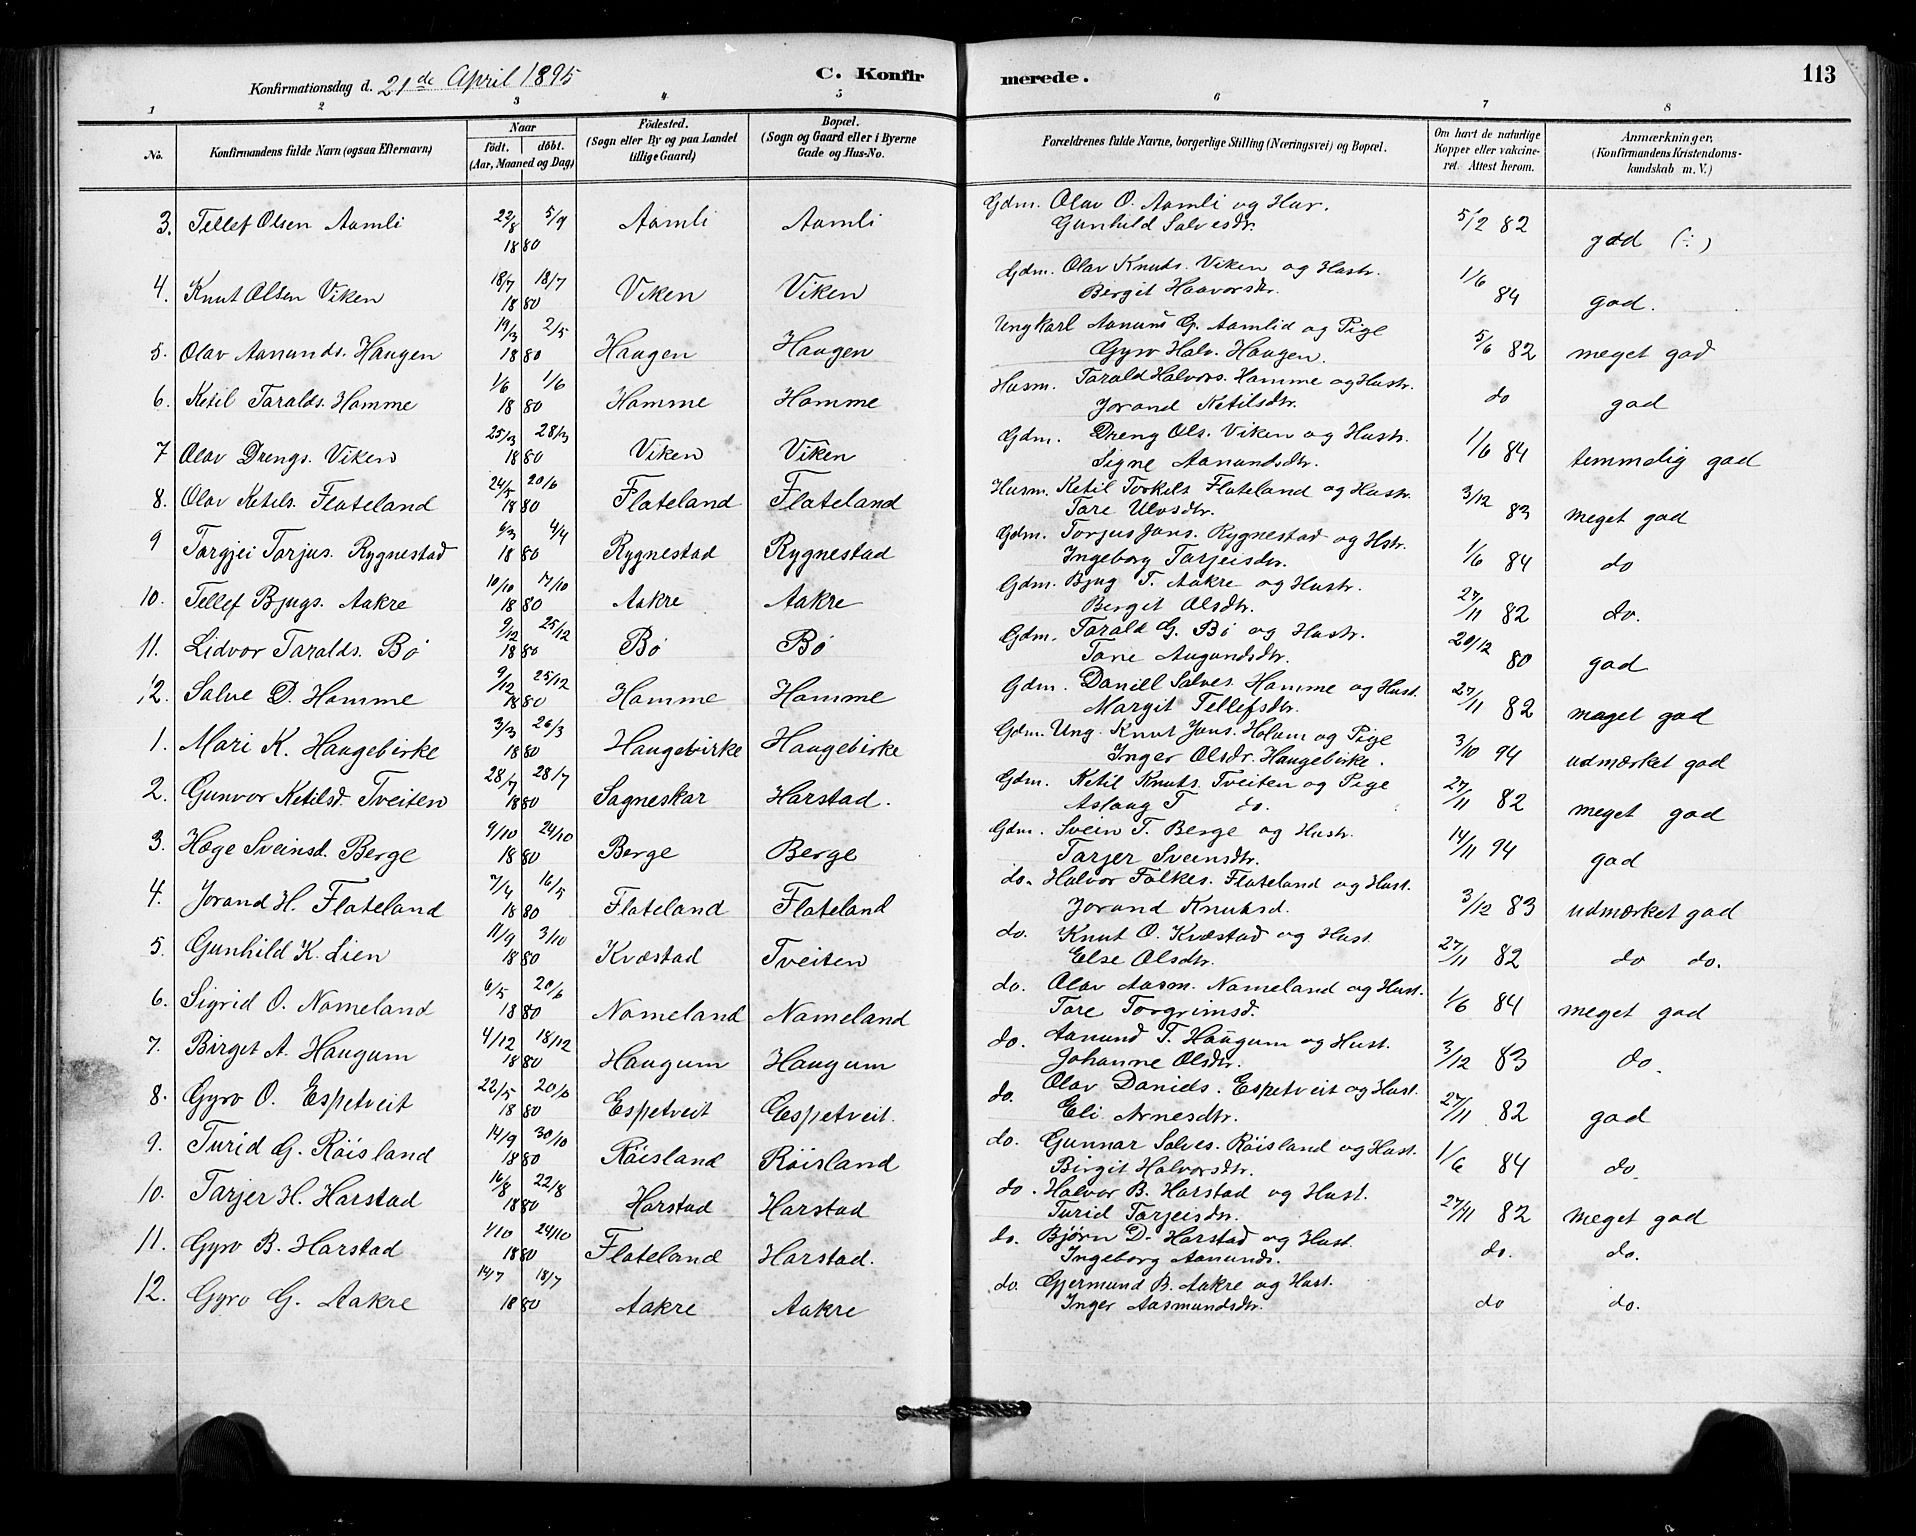 Konfirmationsdag d. 21de April 1895 C. Konfir merede. 113
1 2 3 4 5 6 7 8
No. Konfirmandens fulde Navn (ogsaa Efternavn) Naar født. døbt. (Aar, Maaned og Dag) Födested. (Sogn eller By og paa Landet tillige Gaard) Bopæl. (Sogn og Gaard eller i Byerne Gade og Hus-No. Forældrenes fulde Navne, borgerlige Stilling (Næringsvei) og Bopæl. Om havt de naturlige Kopper eller vakcineret. Attest herom. Anmærkninger, (Konfirmandens Kristendomskundskab m. V.)
3. Tellef Olsen Aamli 22/8 5/9 1880 Aamli Aamli Gdm. Olav O. Aamli og Hus.
Gunhild Salvesdr. 5/12 82 god (:)
4. Knut Olsen Viken 18/7 18/7 1880 Viken Viken Gdm. Olav Knuts. Viken og Hustr.
Bergit Haavorsdr. 1/6 84 god.
5. Olav Aanunds. Haugen 19/3 2/5 1880 Haugen Haugen Ungkarl Aanuns G. Aamlid og Pige
Gyro Halv. Haugen. 5/6 82 meget god
6. Ketil Taralds. Homme 1/6 1/6 1880 Homme Homme Husm. Tarald Halvors. Homme og Hustr.
Jorand Ketilsdtr. do god
7 Olav Drengs. Viken 25/3 28/3 1880 Viken Viken Gdm. Dreng Ols. Viken og Hustr.
Signe Aanundsdtr. 1/6 84 temmelig god
8. Olav Ketils. Flateland 24/5 20/6 1880 Flateland Flateland Husm. Ketil Torkels Flateland og Hustr.
Tore Ulvsdtr. 3/12 83 meget god
9 Torgjei Torjus. Rygnestad 6/3 4/4 1880 Rygnestad Rygnestad Gdm. Torjus Jons. Rygnestad og Hstr.
Ingeborg Tarjeisdr. 1/6 84 do
10. Tellef Bjugs. Aakre 10/10 17/10 1880 Aakre Aakre Gdm. Bjug T. Aakre og Hustr.
Bergit Olsdtr. 27/11 82 do.
11. Lidvor Taralds. Bø 9/12 25/12 1880 Bø Bø Gdm. Tarald G. Bø og Hustr.
Tone Augundsdtr. 20/12 80 god
12. Salve D. Homme 9/12 25/12 1880 Homme Homme Gdm. Daniell Salves. Homme og Hust.
Margit Tellefsdtr. 27/11 82 meget god
1. Mari K. Haugebirke 3/3 26/3 1880 Haugebirke Haugebirke Gdm. Ung. Knut Jons. Holum og Pige
Inger Olsdr. Haugebirke. 3/10 94 udmærket god
2. Gunvor Ketilsd. Tveiten 28/7 28/7 1880 Sagneskar Harstad. Gdm. Ketil Knuts. Tveiten og Pige
Aslaug T do. 27/11 82 meget god
3. Hæge Sveinsd. Berge 9/10 24/10 1880 Berge Berge Gdm. Svein T. Berge og Hustr.
Tarjer Sveinsdtr. 14/11 94 god
4. Jorand H. Flateland 7/4 16/5 1880 Flateland Flateland do. Halvor Folkes. Flateland og Hust.
Jorand Knutsd. 3/12 83 udmærket god
5. Gunhild K. Lien 11/9 3/10 1880 Kvæstad Tveiten do. Knut O. Kvæstad og Hust.
Else Olsdtr. 27/11 82 do do.
6. Sigrid O. Nomeland 6/5 20/6 1880 Nomeland Nomeland do. Olav Aasm. Nomeland og Hust.
Tore Torgrimsd. 1/6 84 meget god
7. Birget A. Haugum 4/12 18/12 1880 Haugum Haugum do. Aanund T. Haugum og Hust.
Johanne Olsdtr. 3/12 83 do.
8. Gyro O. Espetveit 22/5 20/6 1880 Espetveit Espetveit. do. Olav Daniels. Espetveit og Hust.
Eli Arnesdtr. 27/11 82 god
9. Turid G. Røisland 14/9 30/10 1880 Røisland Røisland do. Gunnar Salves. Røisland og Hust.
Birgit Halvorsdtr. 1/6 84 do.
10. Tarjer H. Harstad 16/8 22/8 1880 Harstad Harstad do. Halvor B. Harstad og Hust.
Turid Tarjeisdtr. 27/11 82 meget god
11. Gyro B. Harstad 1/10 24/10 1880 Flateland Harstad. do. Bjørn D. Harstad og Hust.
Ingeborg Aanunds. do. do.
12. Gyro G. Aakre 14/7 18/7 1880 Aakre Aakre do. Gjermund B. Aakre og Hust.
Inger Aasmundsdtr. do do.